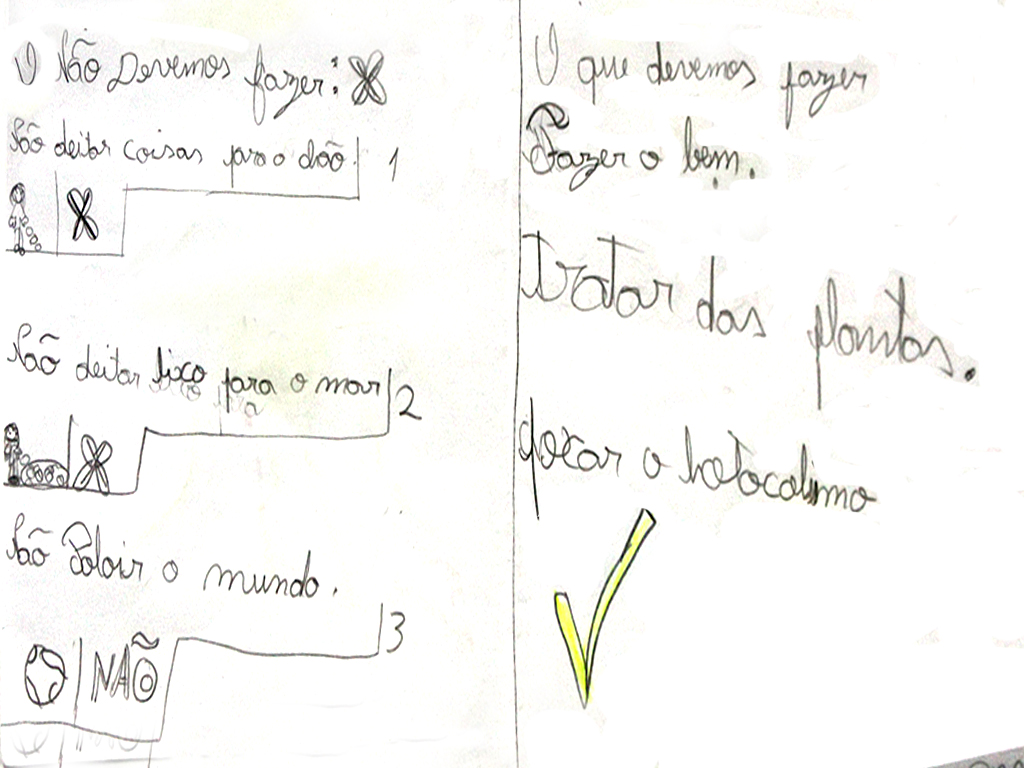 O Não Devemos fazer:
Não deitar coisas para o chão! 1
Não deitar lixo para o mar 2
Não Poloir o mundo.
3
NÃO
O que devemos fazer
Fazer o bem.
tratar das plantas.
o